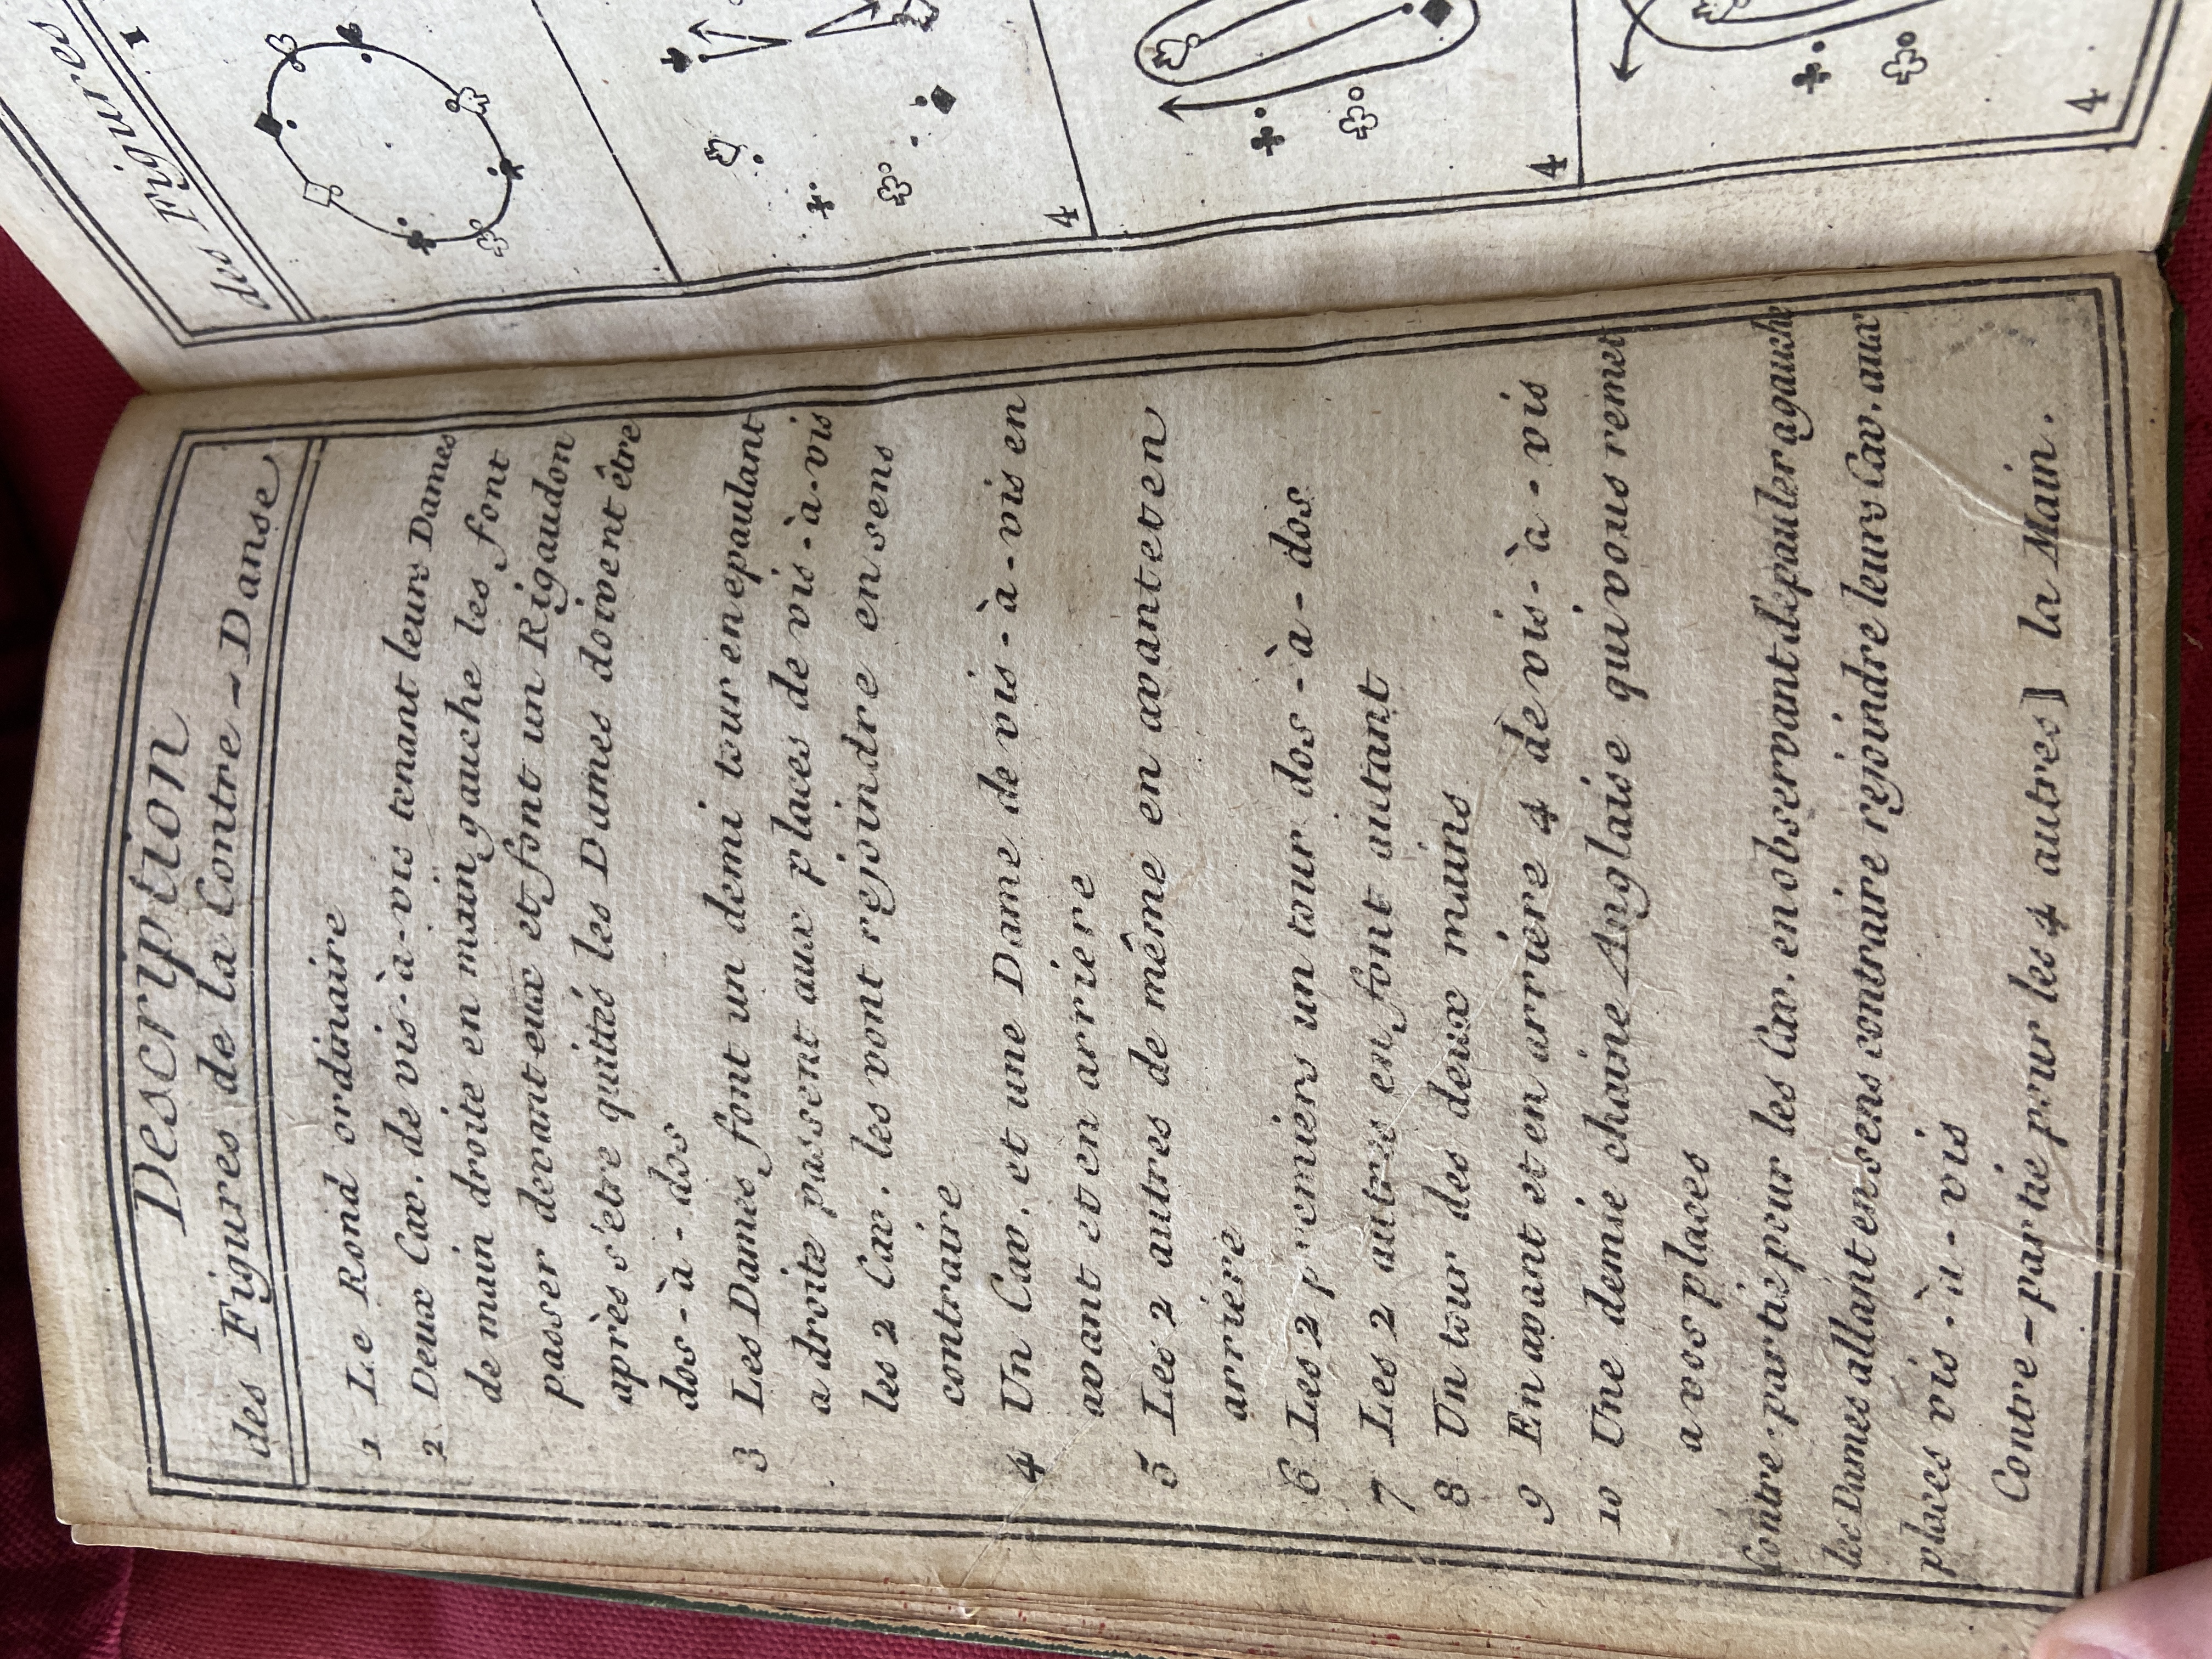 Description
des Figures de la Contre-Danse
1 Le Rond ordinaire
2 Deux Cav. de vis-à-vis tenant leurs Dames
de main droite en main gauche les font
passer devant eux et font un Rigaudon
après s'etre quittés les Dames doivent être
dos-à-dos
3 Les Dames font un demi tour en epaulant
a droite passent aux places de vis-à-vis
les 2 Cav. les vont rejoindre en sens
contraire
4 Un Cav. et une Dame de vis-à-vis en
avant et en arriere
5 Les 2 autres de même en avant et en
arriére
6 Les 2 premiers un tour dos-à-dos
7 Les 2 autres en font autant
8 Un tour des deux mains
9 En avant et en arriere 4 de vis-à-vis
10 Une demie chaine Anglaise qui vous remet
a vos places
Contre-partie pour les Cav. en observant d'epauler a gauche
les Dames allant en sens contraire rejoindre leurs Cav. aux
places vis-à-vis
Contre-partie pour les 4 autres] la Main.
des Figures
1
4
4
4